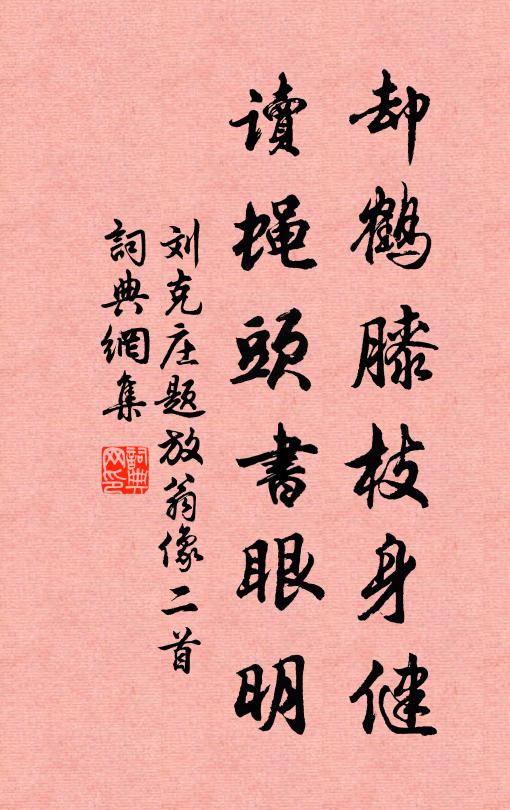 却鹤膝枝身健
读蝇头书眼明
刘克庄题放翁像二首
词典網集
詞典网印